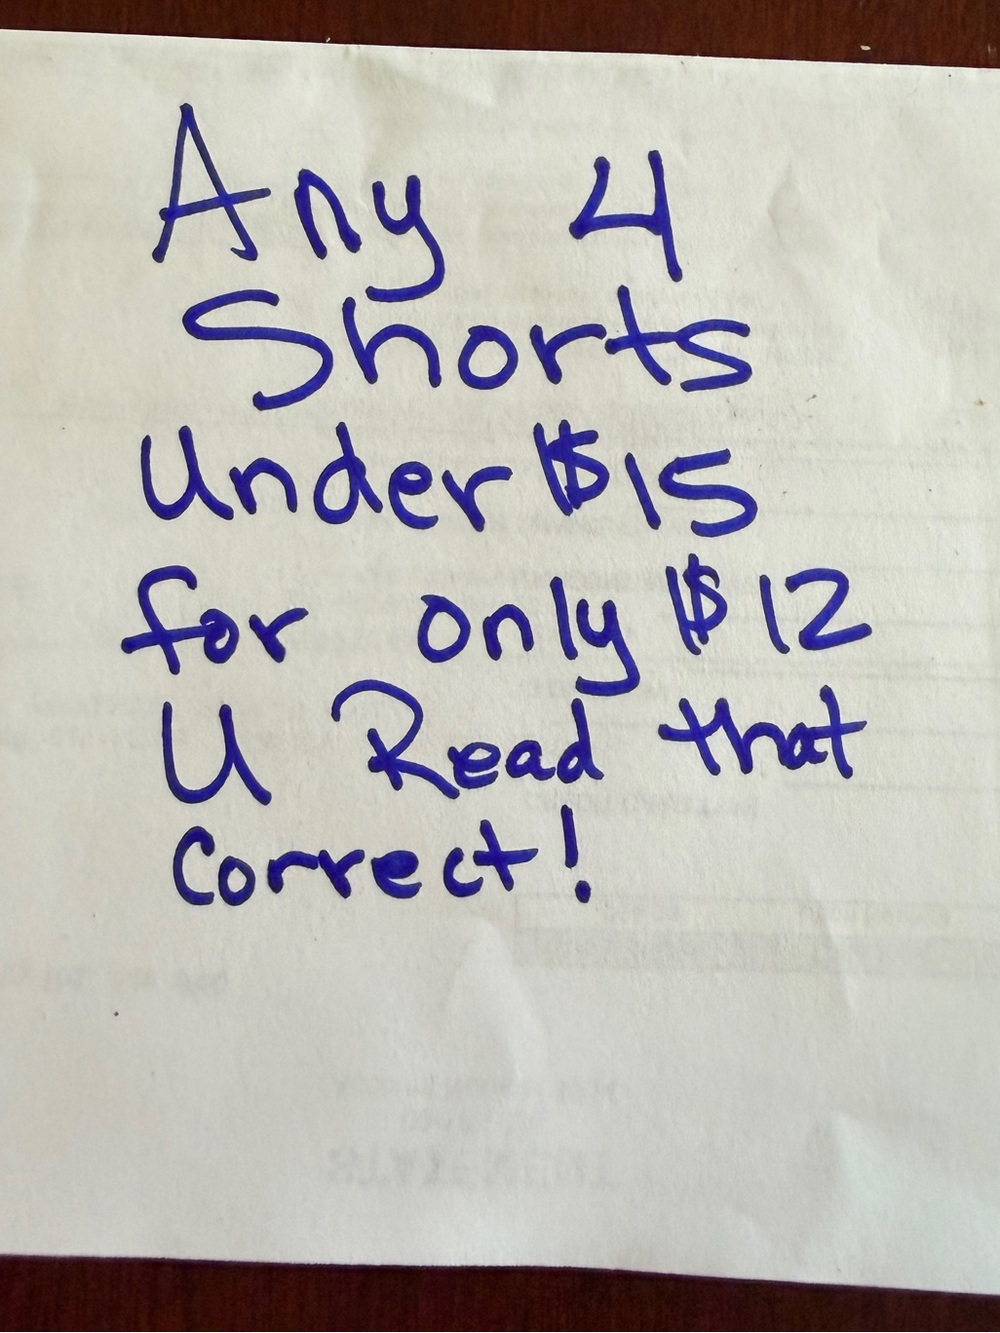 Any 4
Shorts
Under $15
for only $12
U Read that
Correct!